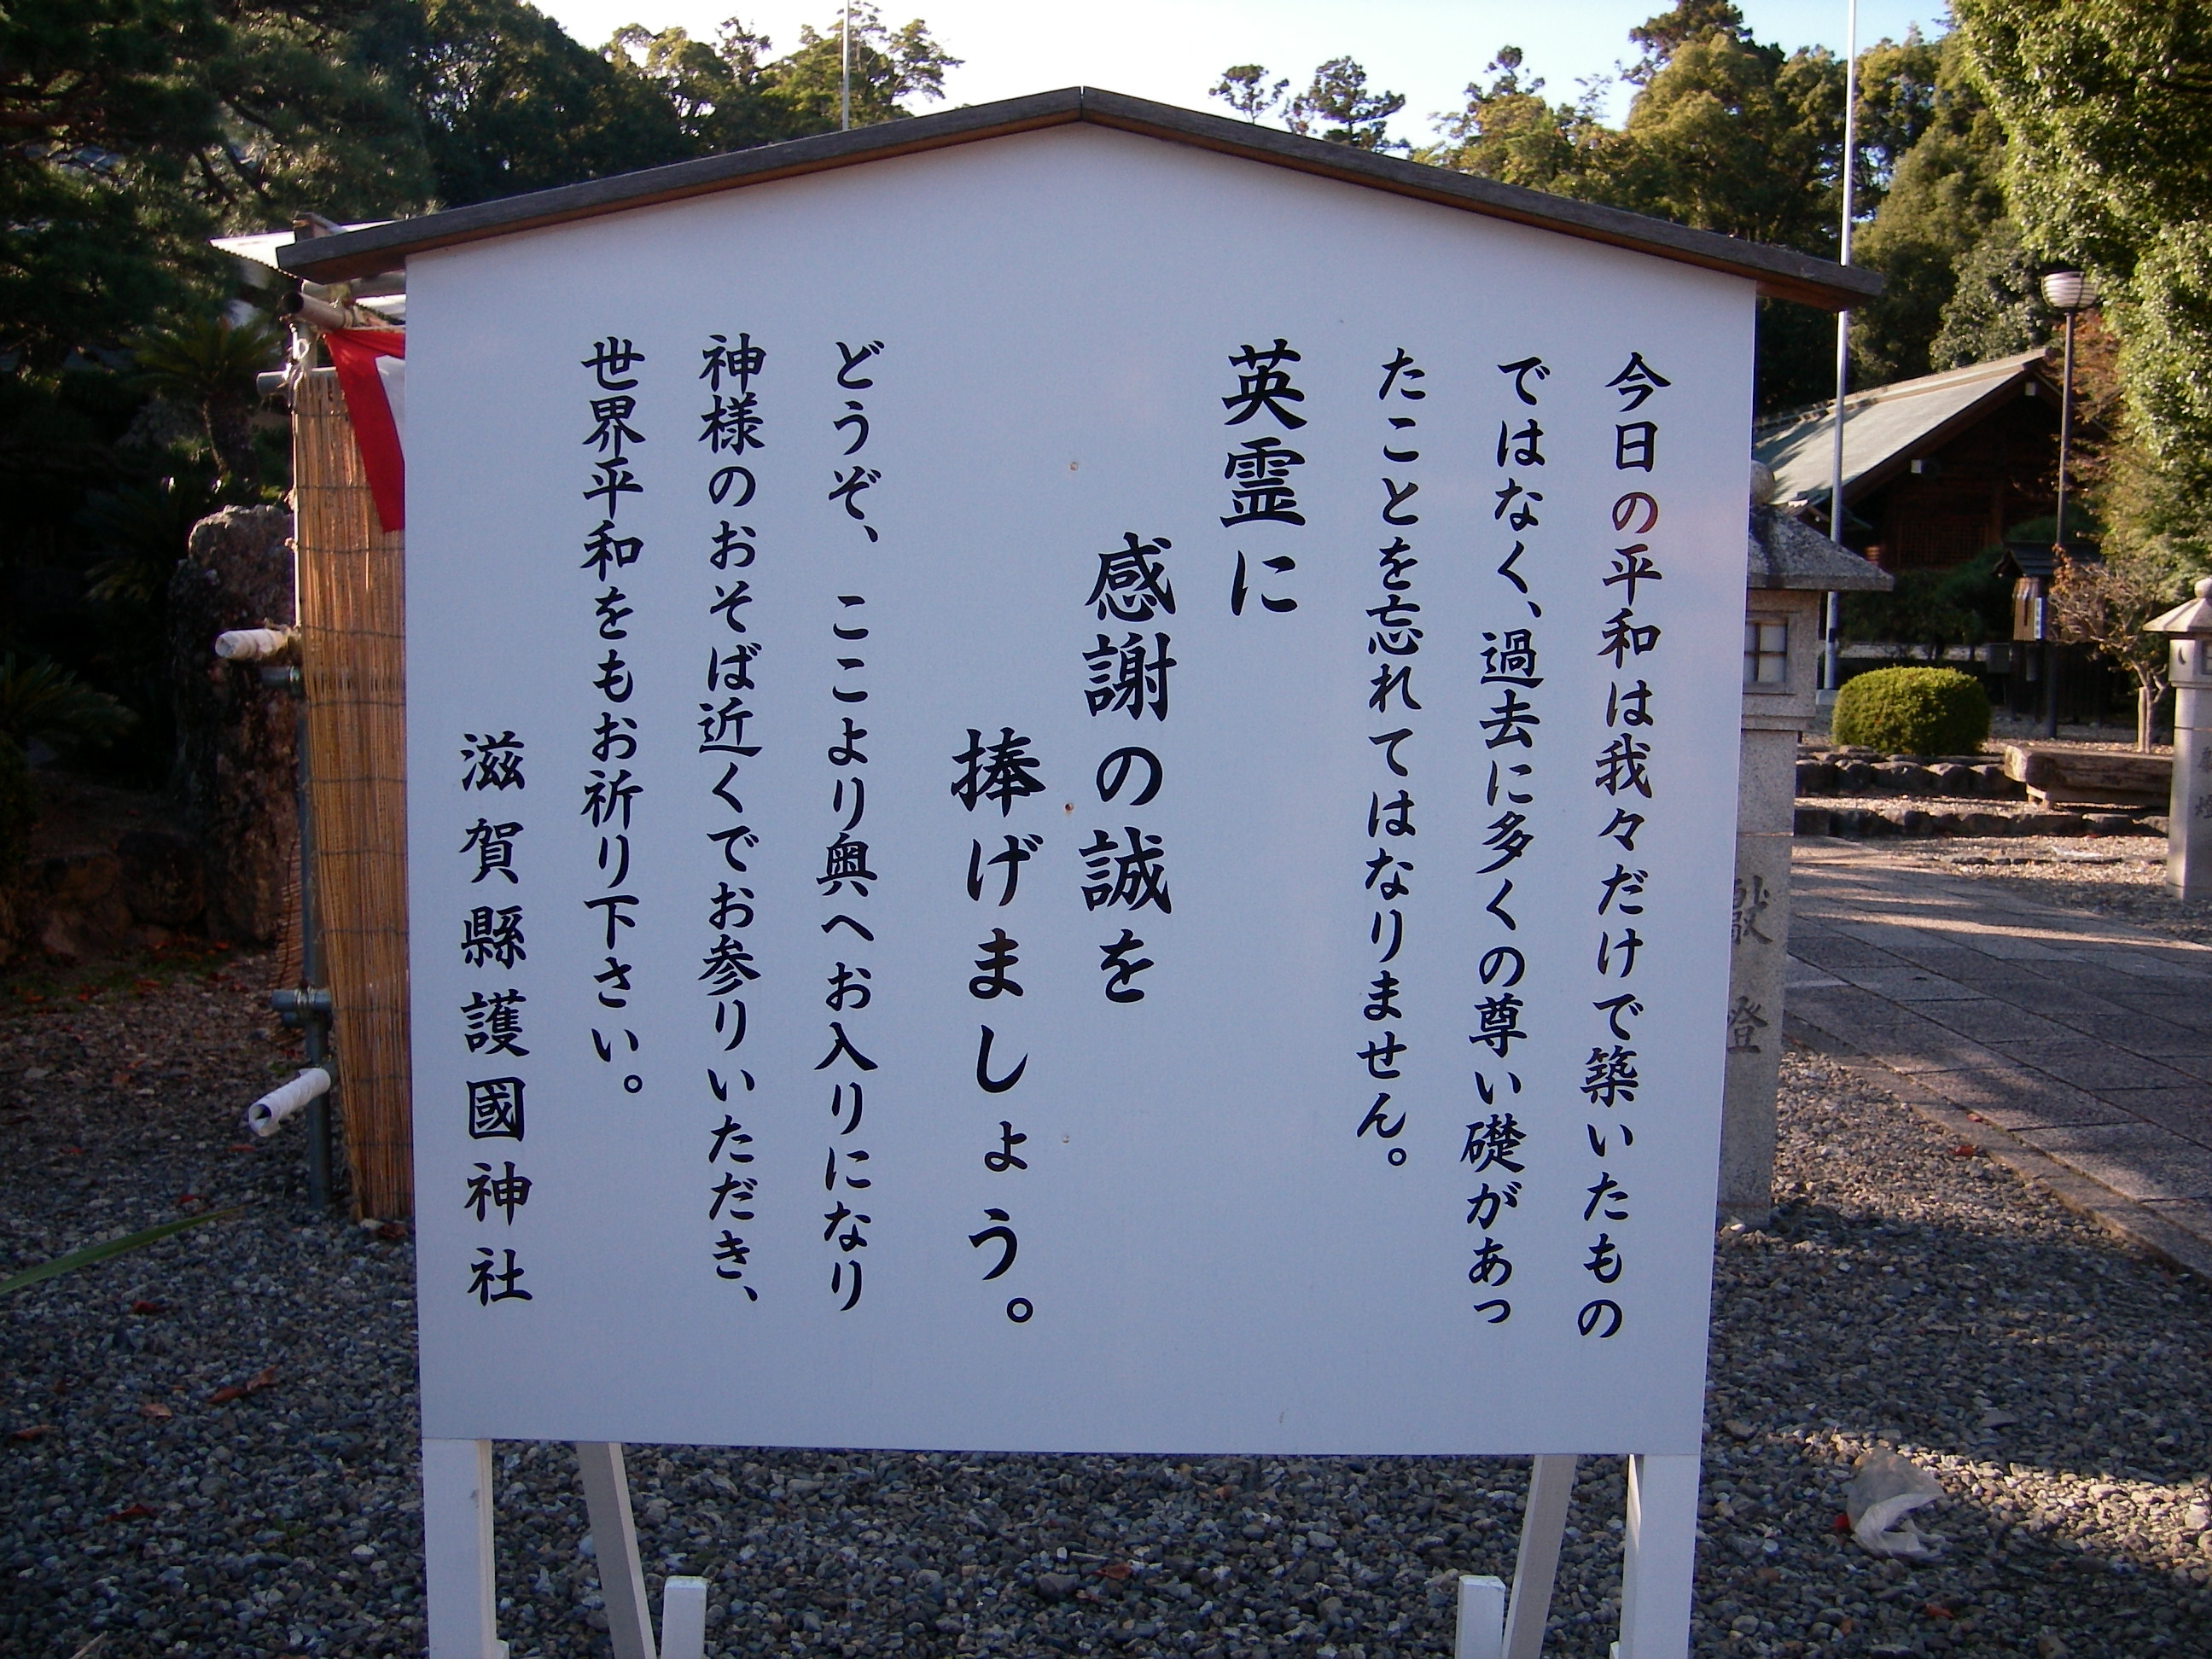 今日の平和は我々だけで築いたもの
ではなく、過去に多くの尊い礎があっ
たことを忘れてはなりません。
英霊に
感謝の誠を
捧げましょう。
どうぞ、ここより奥へお入りになり
神様のおそば近くでお参りいただき、
世界平和をもお祈り下さい。
滋賀縣護國神社